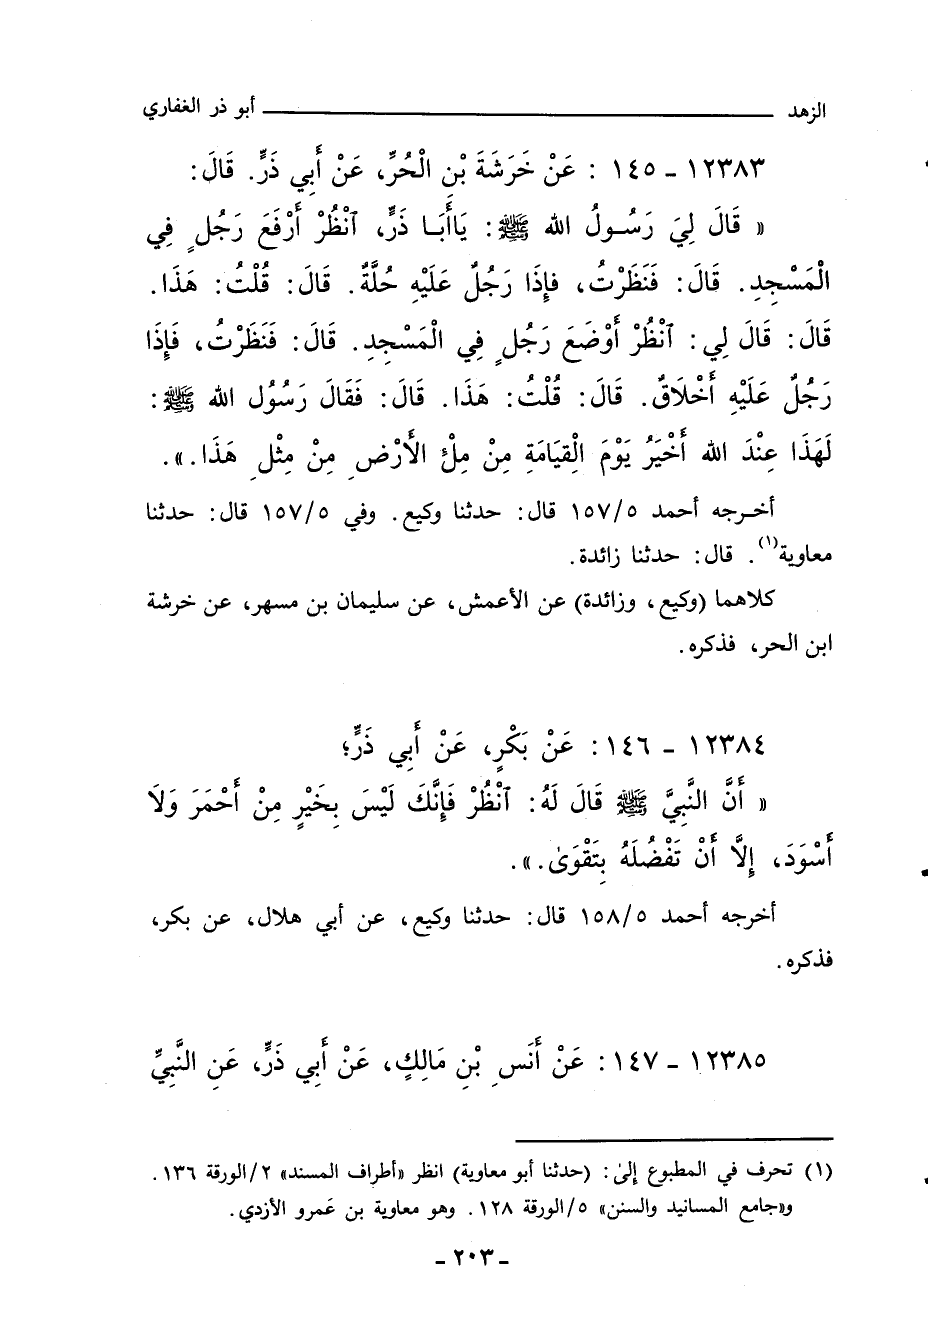 الزهد ــــــــــــــــــــ أبو ذر الغفاري
١٢٣٨٣ - ١٤٥ : عَنْ خَرَشَةَ بْنِ الْحُرِّ، عَنْ أَبِي ذَرٍّ. قَالَ:
« قَالَ لِيَ رَسُولُ الله ﷺ: يَاأَبَا ذَرٍّ، ٱنْظُرْ أَرْفَعَ رَجُلٍ فِي
الْمَسْجِدِ. قَالَ: فَنَظَرْتُ، فإِذَا رَجُلٌ عَلَيْهِ حُلَّةٌ. قَالَ: قُلْتُ: هَذَا.
قَالَ: قَالَ لِي: ٱنْظُرْ أَوْضَعَ رَجُلٍ فِي الْمَسْجِدِ. قَالَ: فَنَظَرْتُ، فَإِذَا
رَجُلٌ عَلَيْهِ أَخْلَاقٌ. قَالَ: قُلْتُ: هَذَا. قَالَ: فَقَالَ رَسُوُل الله ﷺ:
لَهَذَا عِنْدَ الله أَخْيَرُ يَوْمَ الْقِيَامَةِ مِنْ مِلْءِ الأَرْضِ مِنْ مِثْلِ هَذَا.».
أخرجه أحمد ١٥٧/٥ قال: حدثنا وكيع. وفي ١٥٧/٥ قال: حدثنا
معاوية(١). قال: حدثنا زائدة.
كلاهما (وكيع، وزائدة) عن الأعمش، عن سليمان بن مسهر، عن خرشة
ابن الحر، فذكره.
١٢٣٨٤ - ١٤٦ : عَنْ بَكْرٍ، عَنْ أَبِي ذَرٍّ؛
« أَنَّ النَّبِيَّ ﷺ قَالَ لَهُ: ٱنْظُرْ فَإِنَّكَ لَيْسَ بِخَيْرٍ مِنْ أَحْمَرَ وَلَا
أَسْوَدَ، إِلَّا أَنْ تَفْضُلَهُ بِتَقْوَىٰ.».
أخرجه أحمد ١٥٨/٥ قال: حدثنا وكيع، عن أبي هلال، عن بكر،
فذكره.
١٢٣٨٥ - ١٤٧ : عَنْ أَنَسِ بْنِ مَالِكٍ، عَنْ أَبِي ذَرٍّ، عَنِ النَّبِيِّ
(١) تحرف في المطبوع إلىٰ: (حدثنا أبو معاوية) انظر «أطراف المسند» ٢/الورقة ١٣٦.
و«جامع المسانيد والسنن» ٥/الورقة ١٢٨. وهو معاوية بن عَمرو الأزدي.
- ٢٠٣ -